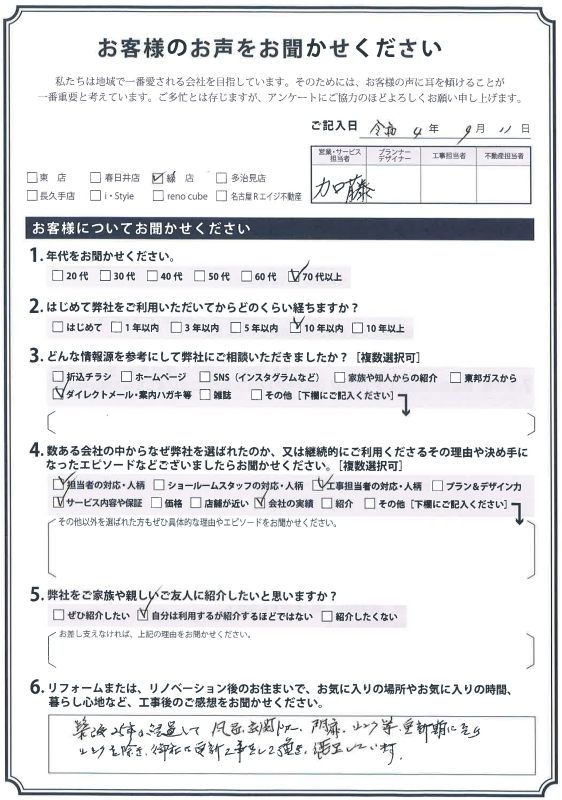 お客様のお声をお聞かせください
私たちは地域で一番愛される会社を目指しています。そのためには、お客様の声に耳を傾けることが
一番重要と考えています。ご多忙とは存じますが、アンケートにご協力のほどよろしくお願い申し上げます。
ご記入日 令和 4 年 9 月 11 日
営業・サービス担当者 プランナーデザイナー 工事担当者 不動産担当者
加藤
□東 店 □春日井店 ☑緑 店 □多治見店
□長久手店 □i・Style □reno cube □名古屋Rエイジ不動産
お客様についてお聞かせください
1. 年代をお聞かせください。
□20代 □30代 □40代 □50代 □60代 ☑70代以上
2. はじめて弊社をご利用いただいてからどのくらい経ちますか？
□はじめて □1年以内 □3年以内 □5年以内 ☑10年以内 □10年以上
3. どんな情報源を参考にして弊社にご相談いただきましたか？［複数選択可］
□折込チラシ □ホームページ □SNS（インスタグラムなど） □家族や知人からの紹介 □東邦ガスから
☑ダイレクトメール・案内ハガキ等 □雑誌 □その他［下欄にご記入ください］
4. 数ある会社の中からなぜ弊社を選ばれたのか、又は継続的にご利用くださるその理由や決め手に
なったエピソードなどございましたらお聞かせください。［複数選択可］
☑担当者の対応・人柄 □ショールームスタッフの対応・人柄 ☑工事担当者の対応・人柄 □プラン＆デザイン力
☑サービス内容や保証 □価格 □店舗が近い ☑会社の実績 □紹介 □その他［下欄にご記入ください］
その他以外を選ばれた方もぜひ具体的な理由やエピソードをお聞かせください。
5. 弊社をご家族や親しいご友人に紹介したいと思いますか？
□ぜひ紹介したい ☑自分は利用するが紹介するほどではない □紹介したくない
お差し支えなければ、上記の理由をお聞かせください。
6. リフォームまたは、リノベーション後のお住まいで、お気に入りの場所やお気に入りの時間、
暮らし心地など、工事後のご感想をお聞かせください。
築後25年が経過して 風呂、玄関ドアー、門扉、 等、更新期に
を除き、御社に更新工事をして 、満足しています。